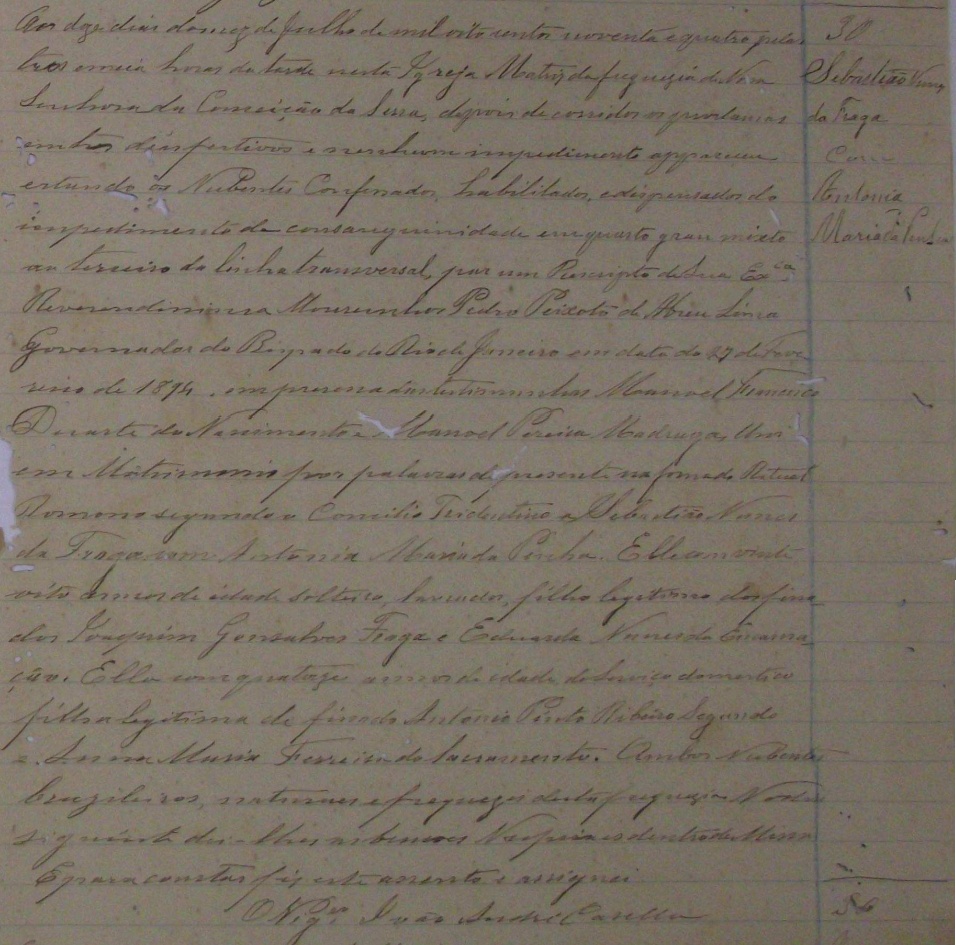 Aos doze dias do mez de Julho de mil oito centos noventa e quatro, pelas
30
tres e meia horas da tarde nesta Igreja Matriz da freguezia de Nossa
Sebastião Nunes
Senhora da Conceição da Serra, depois de corridos os proclamas
da Fraga
em tres dias festivos e nenhum impedimento appareceu
Com
estando os Nubentes Confessados, habilitados, e dispensados do
Antonia
impedimento de consanguinidade em quarto grau mixto
Maria da Penha
ao terceiro da linha transversal, por um Rescripto de Sua Ex.cia
Reverendissima Monsenhor Pedro Peixoto d'Abreu Lima
Governador do Bispado do Rio de Janeiro em data do 27 de Feve
reiro de 1894, em presença das testimunhas Manoel Francisco
Duarte do Nascimento e Manoel Pereira Madruga, Uni
em Matrimonio por palavras de presente na forma do Ritual
Romano segundo o Concilio Tridentino a Sebastião Nunes
da Fraga com Antonia Maria da Penha. Elle com vinte
oito annos de idade solteiro, lavrador, filho legitimo dos fina
dos Joaquim Gonsalves Fraga e Eduarda Nunes da Encarna
ção. Ella com quatorze annos de idade de Serviço domestico
filha legitima de finado Antonio Pinto Ribeiro Segundo
e Anna Maria Ferreira do Sacramento. Ambos Nubentes
brazileiros, naturaes e freguezes desta freguezia. No dia
siguinte dei-lhes as bençoes Nupciaes dentro da Missa
E para constar fiz este assento e assignei
O Vig.ro João André Casella
56